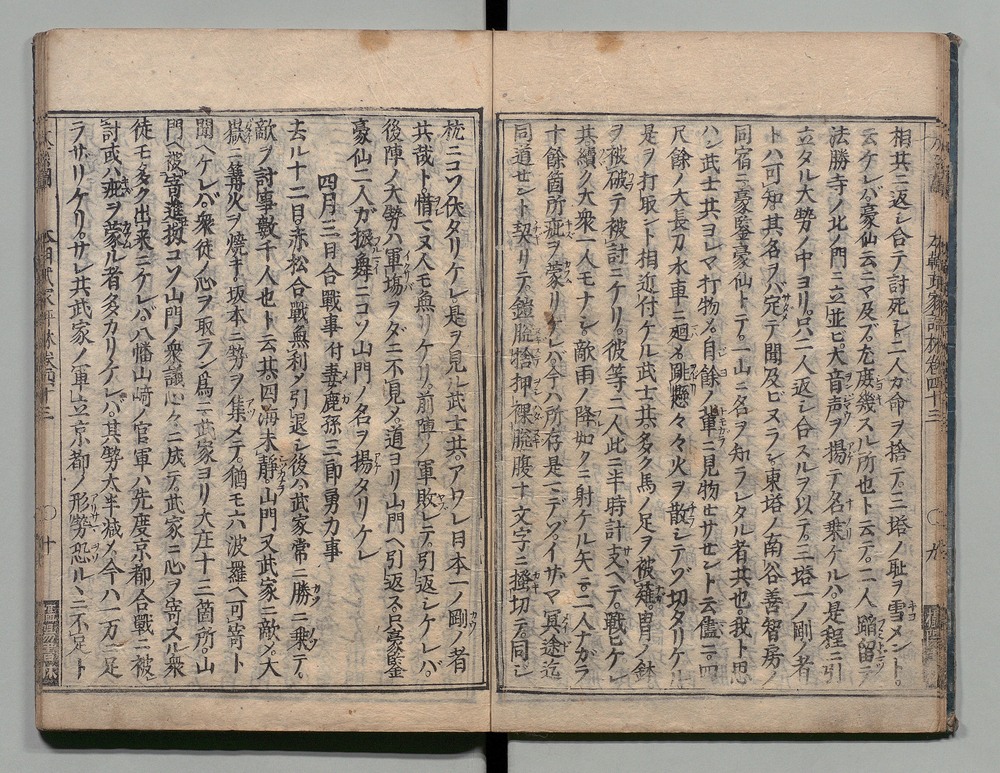 相共ニ返シ合テ討死シ二人カ命ヲ捨テ。三塔ノ耻ヲ雪メント。
云ケレバ。豪仙云ニマ及ブ。尤庶幾スル所也ト云テ。二人蹈留テ
法勝寺ノ北ノ門ニ立並ビ。大音声ヲ揚テ名乗ケルハ。是程ニ引
立タル大勢ノ中ヨリ。只二人返シ合スルヲ以テ。三塔一ノ剛ノ者
トハ可知。其名ヲバ定テ聞及ビヌラン。東塔ノ南谷善智房ノ
同宿ニ豪鑒豪仙トテ。一山ニ名ヲ知ラレタル者共也。我ト思
ハン武士共ヨレマ打物メ。自餘ノ輩ニ見物セサセント云儘ニ。四
尺餘ノ大長刀水車ニ廻メ。跳懸々々火ヲ散シテゾ切タリケル
是ヲ打取ント相近付ケル武士共。多ク馬ノ足ヲ被薙。冑ノ鉢
ヲ被破テ被討ニケリ。彼等二人此ニ半時計支ヘテ。戰ヒケレ
共。續ク大衆一人モナシ。敵雨ノ降如クニ射ケル矢ニ。二人ナガラ
十餘箇所疵ヲ蒙リケレバ。今ハ所存是マデゾ。イザマ冥途迄
同道セント契リテ。鎧脱捨押裸脱腹十文字ニ掻切テ。同シ
枕ニコソ伏タリケレ。是ヲ見ル武士共。アワレ日本一ノ剛ノ者
共哉ト。惜マヌ人モ無リケリ。前陣ノ軍敗レテ。引返シケレバ。
後陣ノ大勢ハ軍場ヲダニ不見メ。道ヨリ山門ヘ引返ス。只豪鑒
豪仙二人ガ振舞ニコソ山門ノ名ヲ揚タリケレ
四月三日合戰事付妻鹿孫三郎勇力事
去ル十二日。赤松合戰無利メ引退シ後ハ。武家常ニ勝ニ乗テ。
敵ヲ討事數千人也ト云共。四海未静。山門又武家ニ敵メ。大
嶽ニ篝火ヲ燒キ。坂本ニ勢ヲ集メテ。猶モ六波羅ヘ可寄ト
聞ヘケレバ。衆徒ノ心ヲ取ラン爲ニ。武家ヨリ大庄十三箇所。山
門ヘ被寄進。扨コソ山門ノ衆議心々ニ成テ。武家ニ心ヲ寄スル衆
徒モ多ク出来ニケレバ。八幡山崎ノ官軍ハ先度京都合戰ニ被
討。或ハ疵ヲ蒙ル者多カリケレハ。其勢大半減メ。今ハ一万ニ足
ラザリケリ。サレ共武家ノ軍立京都ノ形勢恐ルヽニ不足ト